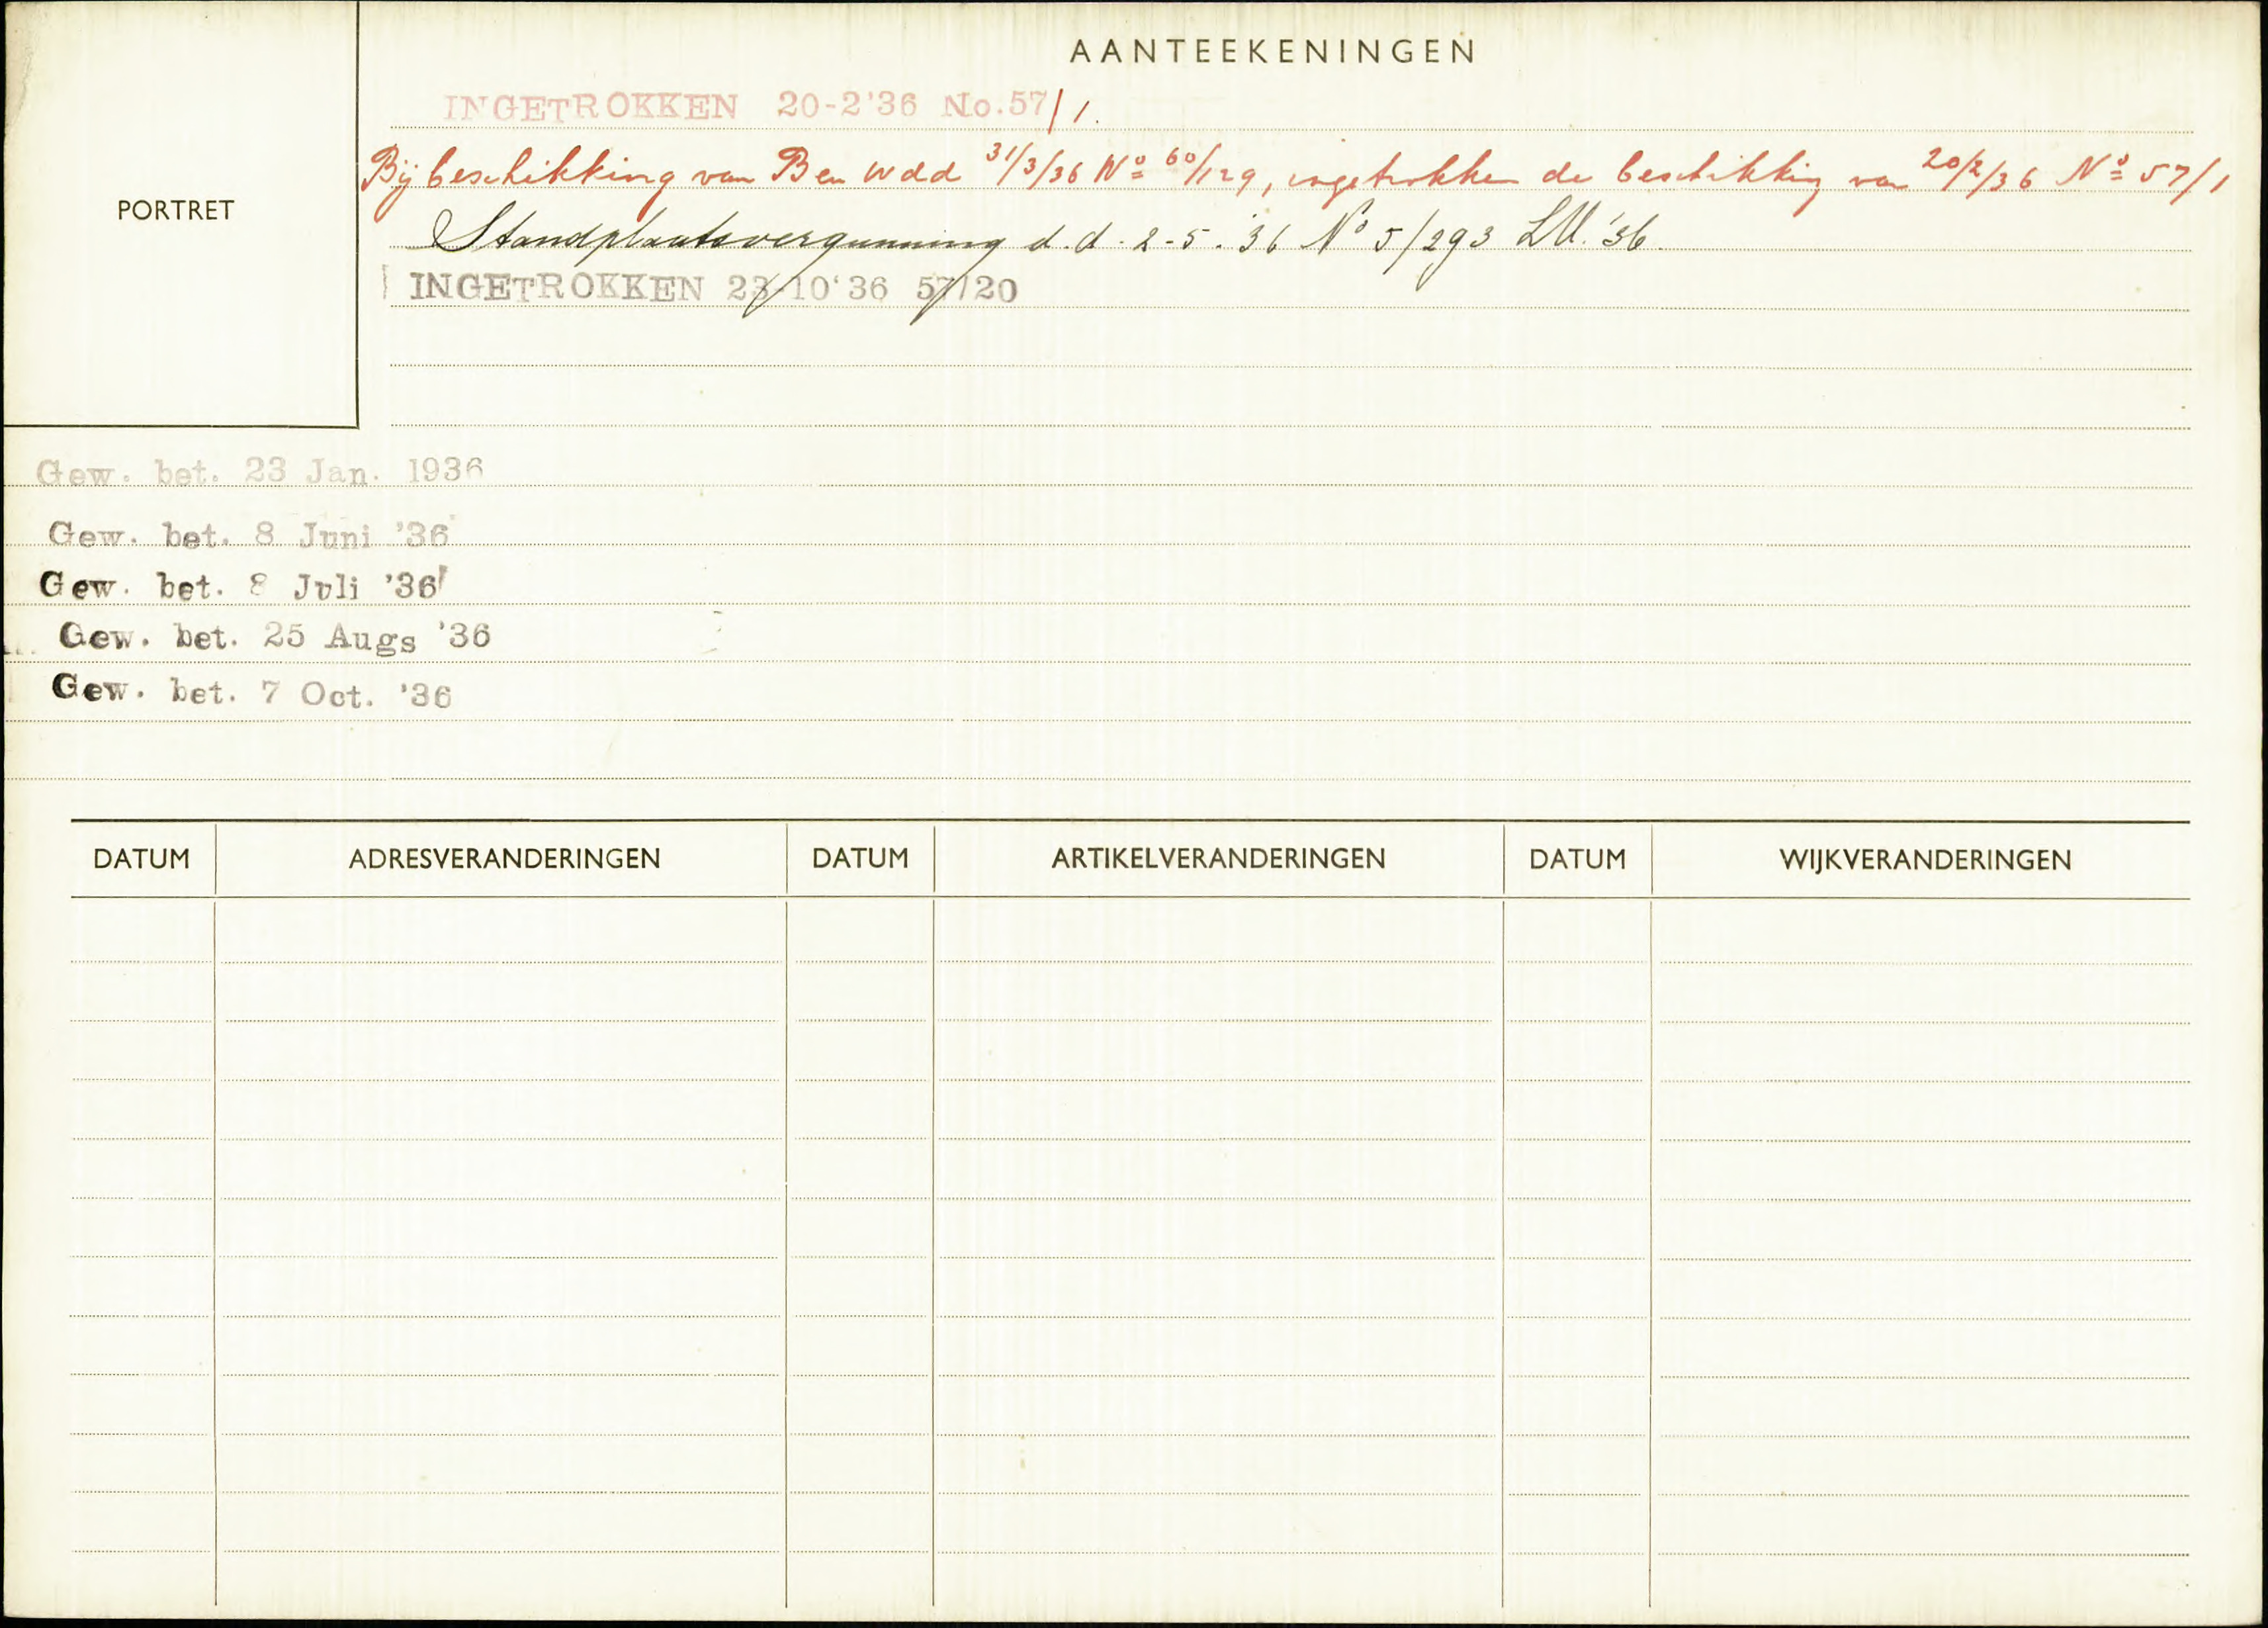 AANTEEKENINGEN
PORTRET
INGETROKKEN 20-2'36 No.57/1.
Bij beschikking van B en W dd 31/3/36 No 60/129, ingetrokken de beschikking van 20/2/36 No 57/1
Standplaatsvergunning d.d. 2-5-'36 No 5/293 LM. '36.
INGETROKKEN 23-10'36 57/20
Gew. bet. 23 Jan. 1936
Gew. bet. 8 Juni '36
Gew. bet. 8 Juli '36
Gew. bet. 25 Augs '36
Gew. bet. 7 Oct. '36
DATUM ADRESVERANDERINGEN DATUM ARTIKELVERANDERINGEN DATUM WIJKVERANDERINGEN